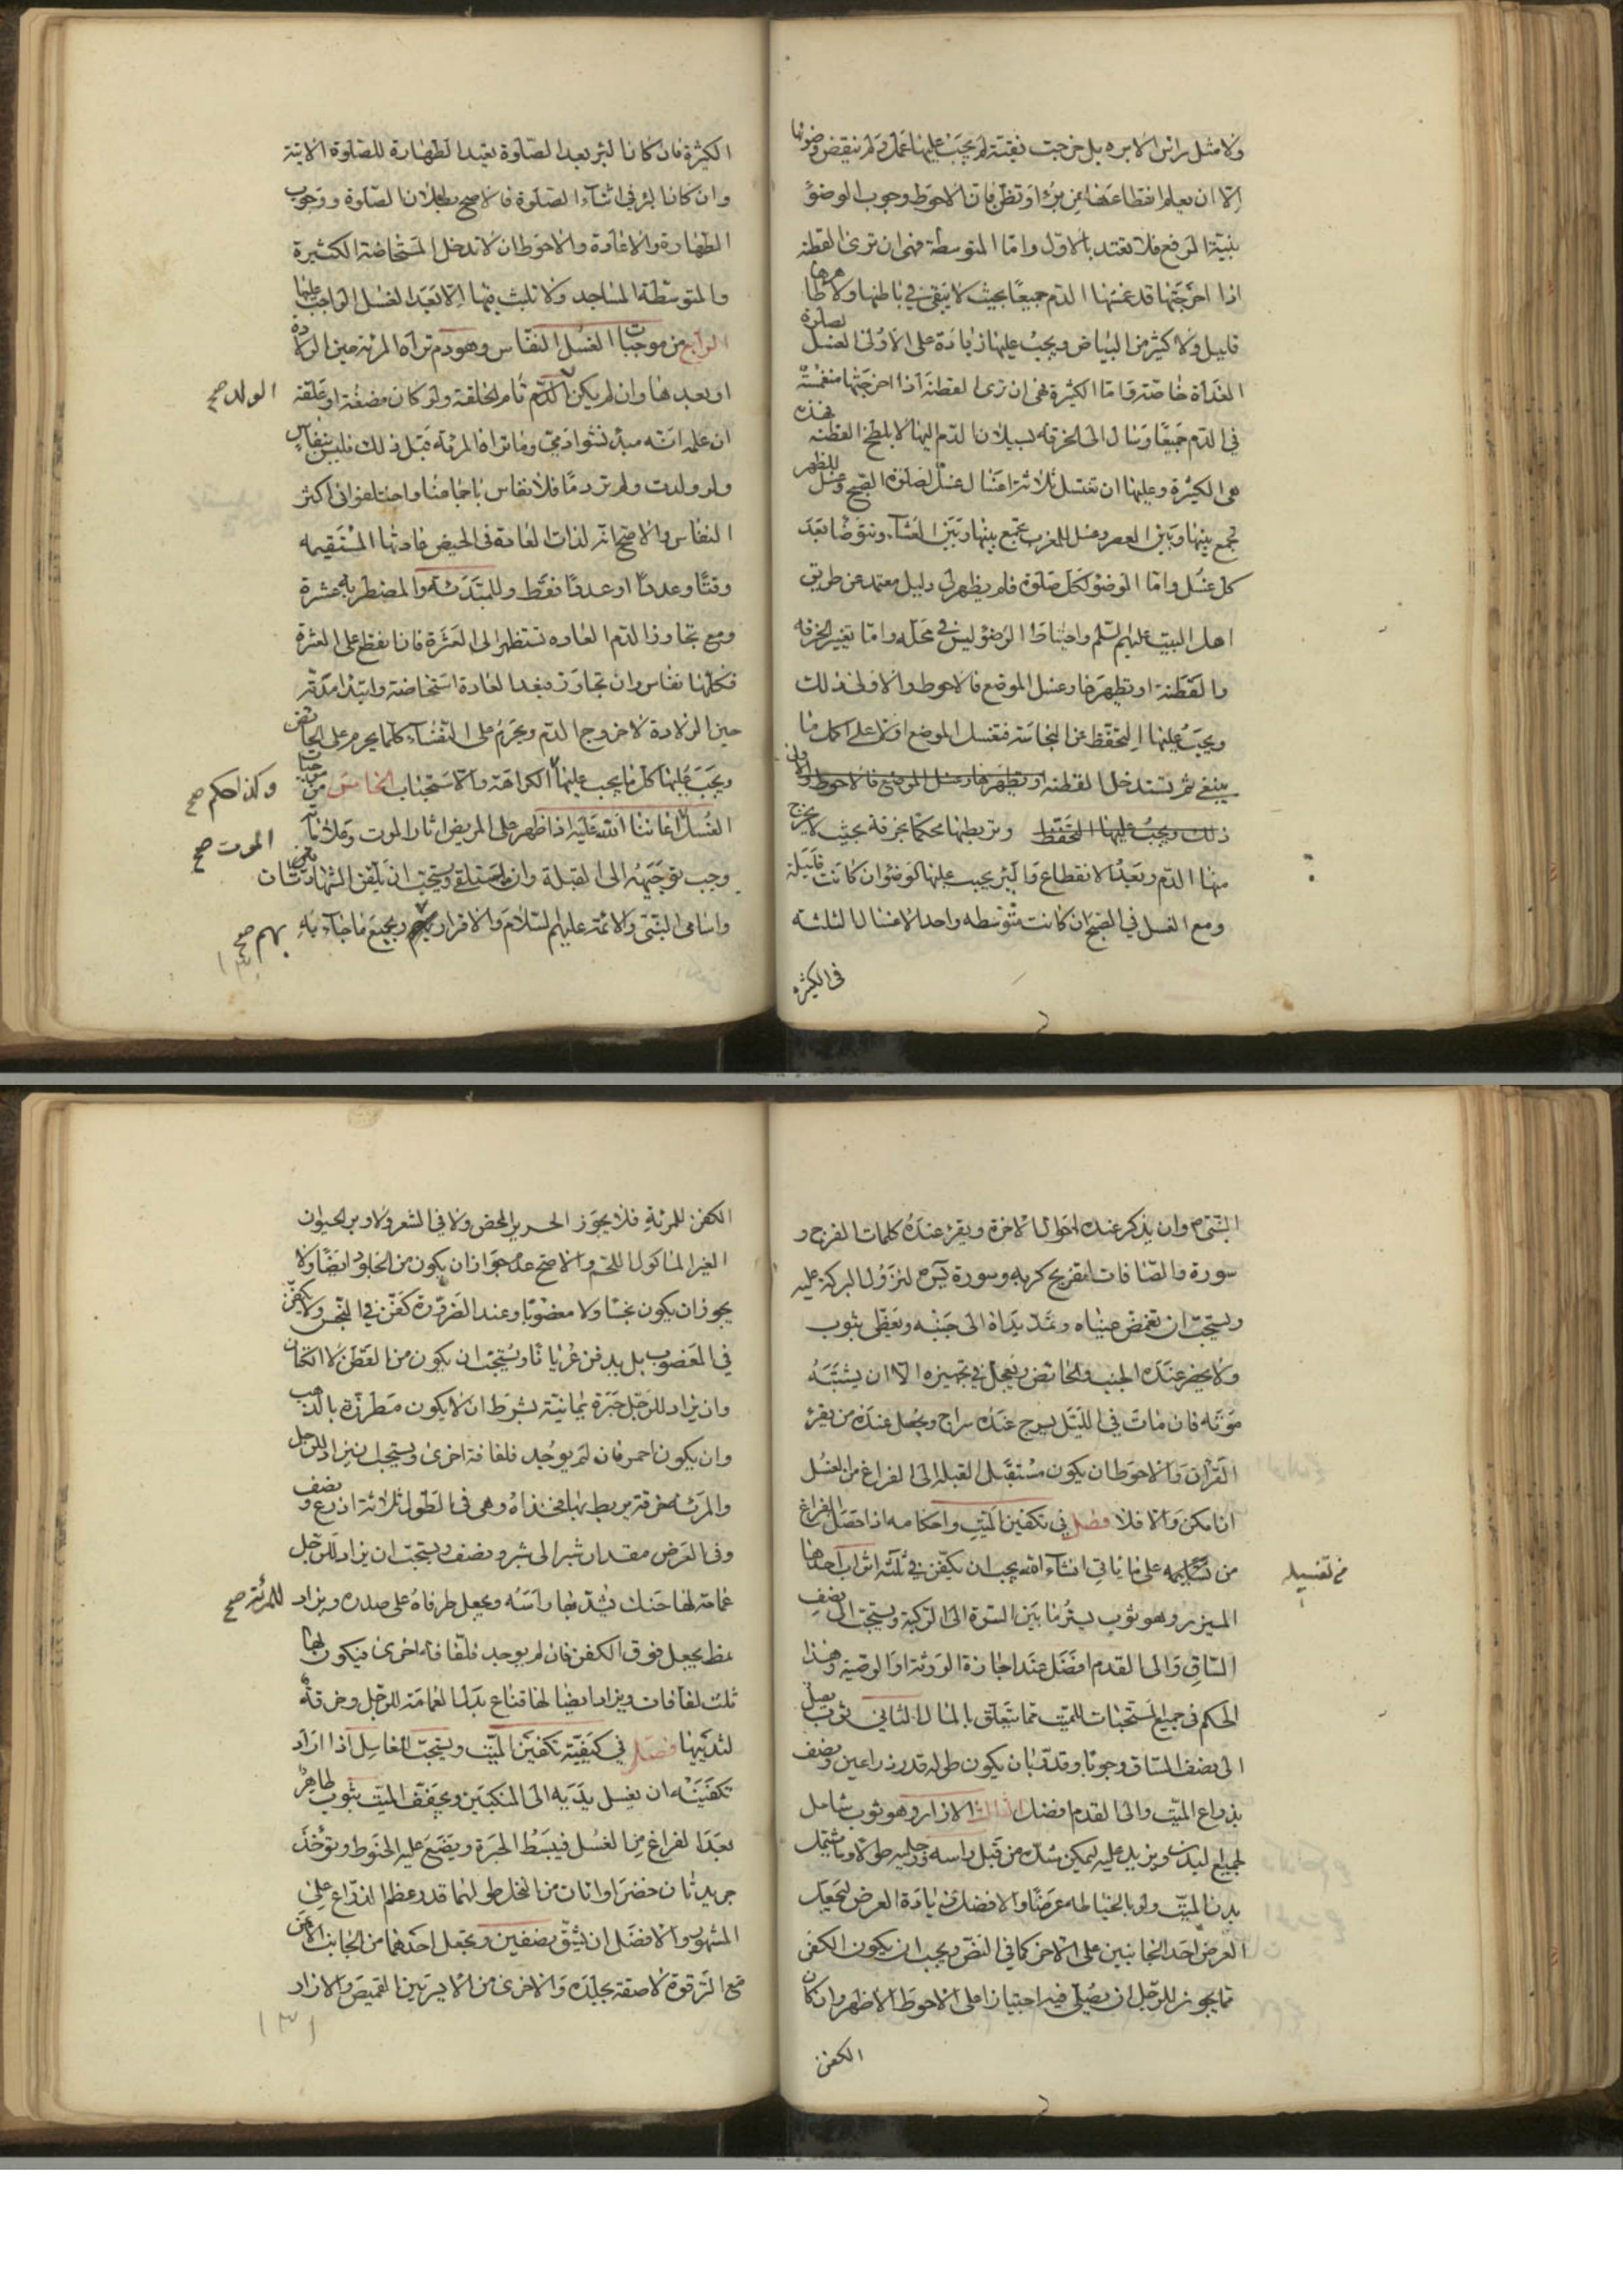 ولا مثل راس الابره بل خرجت نقيّة لم يجب عليها عمل ولم ينقض وضوئها
الّا ان يعلم انقطاعها عن برء او تظن فانّ الاحوط وجوب الوضوء
بنيّة الرفع فلا تعتد بالاول وامّا المتوسطة فهى ان ترى القطنة
اذا اخرجتها قد غمسها الدّم جميعًا بحيث لا يبقى فى باطنها ولا ظاهرها
قليل ولا كثير من البياض ويجب عليها زيادة على الاولى الغسل لصلوة
الغداة خاصّة وامّا الكثيرة فهى ان ترى القطنة اذا اخرجتها منغمسة
فى الدّم جميعًا وسال الى الخرقه بسيلان الدّم اليها لا بلطخ القطنه فهذه
هى الكثيرة وعليها ان تغتسل ثلاثة اغسال غسل لصلوة الصبح وغسل للظهر
تجمع بينها وبين العصر وغسل للمغرب تجمع بينها وبين العشاء وتتوضا بعد
كل غسل وامّا الوضوء لكل صلوة فلم يظهر لى دليل معتمد عن طريق
اهل البيت عليهم السّلم واحتياط الوضوء ليس فى محلّه وامّا تغيير الخرقه
والقطنة او تطهيرها وغسل الموضع فالاحوط والاولى ذلك
ويجب عليها التحفّظ عن النجاسة فتغسل الموضع اوّلا على اكمل ما
ينبغى ثم تستدخل القطنة او تطهيرها وغسل الموضع فالاحوط والاولى
ذلك ويجب عليها التحفّظ وتربطها محكمًا بخرقة بحيث لا يخرج
منها الدّم وبعد الانقطاع والبرء يجب عليها الوضوء ان كانت قليلة
ومع الغسل فى الصبح ان كانت متوسطه واحد الاغسال الثلثه
فى الكثيره
الكثيرة فان كان البرء بعد الصّلوة تعيد الطهارة للصّلوة الاتية
وان كان البرء فى اثناء الصّلوة فالاصح بطلان الصّلوة ووجوب
الطهارة والاعادة والاحوط ان لا تدخل المستحاضة الكثيرة
والمتوسّطة المساجد ولا تلبث فيها الّا بعد الغسل الواجب عليها
الرابع من موجبات الغسل النفاس وهو دم تراه المرئة حين الولادة
او بعدها وان لم يكن الدّم تام الخلقة ولو كان مضغة او علقة
الولد صح
ان علم انّه مبدء نشو ادمى وما تراه المرئة قبل ذلك فليس بنفاس
ولو ولدت ولم تر دمًا فلا نفاس باجماعنا واختلفوا فى اكثر
النفاس والاصح انه لذات العادة فى الحيض عادتها المستقيمه
وقتًا وعددًا او عددًا فقط وللمبتدئة والمضطربه عشرة
ومع تجاوز الدّم العاده تستظهر الى العشرة فان انقطع على العشرة
فكلّها نفاس وان تجاوز فبعد العادة استحاضة وابتداء مدّته
حين الولادة لا خروج الدّم ويحرم على النفساء كلما يحرم على الحائض
ويجب عليها كل ما يجب عليها الكراهة والاستحباب الخامس من موجبات
وكذا حكم صح
الغسل اعاننا الله عليه اذا ظهر على المريض اثار الموت وعلاماته
الموت صح
وجب توجيهه الى القبلة وان يستلقى ويستحب ان يلقن الشهادتان
واسامى النبّى والائمة عليهم السّلام والاقرار وبجميع ما جاء به
بهم صح
النّبّى م وان يذكر عنده احوال الاخرة ويقرء عنده كلمات الفرج و
سورة والصّافات لتفريج كربه وسورة يس لنزول البركة عليه
ويستحب ان تغمض عيناه وتمدّ يداه الى جنبه ويغطى بثوب
ولا يحضر عنده الجنب والحائض ويعجل فى تجهيزه الا ان يشتبه
موته فان مات فى اللّيل يسرج عنده سراج ويجعل عنده من يقرء
القران والاحوط ان يكون مستقبل القبله الى الفراغ من الغسل
ان امكن والا فلا فصل فى تكفين الميت واحكامه اذا حصل الفراغ
من تغسيله على ما ياتى انشاء الله يجب ان يكفن فى ثلثة اثواب احدها
من تغسيله
الميزر وهو ثوب يستر ما بين السرة الى الركبة ويستحب الى نصف
السّاق والى القدم افضل عند اجازة الورثة او الوصيّة وهذا
الحكم فى جميع المستحبات للميت ممّا يتعلق بالمال الثانى ثوب يصل
الى نصف السّاق وجوبًا وقدّر بان يكون طوله قدر ذراعين ونصف
بذراع الميّت والى القدم افضل الثالث الازار وهو ثوب شامل
لجميع البدن ويزيد عليه ليمكن شدّه من قبل راسه ورجليه طولًا وما يشتمل
بدن الميّت ولو بالخياطه عرضًا والافضل زيادة العرض ليجعل
العرض احد الجانبين على الاخر كما فى النصّ ويجب ان يكون الكفن
ممّا يجوز للرجل ان يصلّى فيه اختيارًا على الاحوط الاظهر وان كان
الكفن
الكفن للمرئة فلا يجوز الحرير المحض ولا فى الشعر ولا وبر الحيوان
الغير الماكول اللحم والاصح عدم جواز ان يكون من الجلود ايضًا ولا
يجوز ان يكون نجسًا ولا مغصوبًا وعند الضرورة كفن فى النجس ولا يكفن
فى المغصوب بل يدفن عريانًا ويستحب ان يكون من القطن لا الكتان
وان يزاد للرّجل حبرة يمانية بشرط ان لا يكون مطرزة بالذهب
وان يكون احمر فان لم يوجد فلفافة اخرى ويستحب ان يزاد للرجل
والمرئه خرقة يربط بها فخذاه وهى فى الطول ثلاثة اذرع ونصف
وفى العرض مقدار شبر الى شبر ونصف ويستحب ان يزاد للرجل
عمامة لها حنك يشدّ بها رأسه ويجعل طرفاه على صدره ويزاد
للمرئة صح
نمط يجعل فوق الكفن فان لم يوجد فلفّافة اخرى فيكون لها
ثلث لفافات ويزاد ايضًا لها قناع بدل العمامة للرّجل وخرقة
لثدييها فصل فى كيفيّة تكفين الميّت ويستحب للغاسل اذا اراد
تكفينه ان يغسل يديه الى المنكبين ويجفّف الميّت بثوب طاهر
بعد الفراغ من الغسل فيبسط الحبرة ويضع عليه الحنوط ويؤخذ
جريدتان خضراوانان من النخل طولهما قدر عظم الذّراع على
المشهور والافضل ان يشقّ بنصفين ويجعل احدهما من الجانب الايمن
مع الترقوة لاصقة بجلده والاخرى من الايسر بين القميص والازار